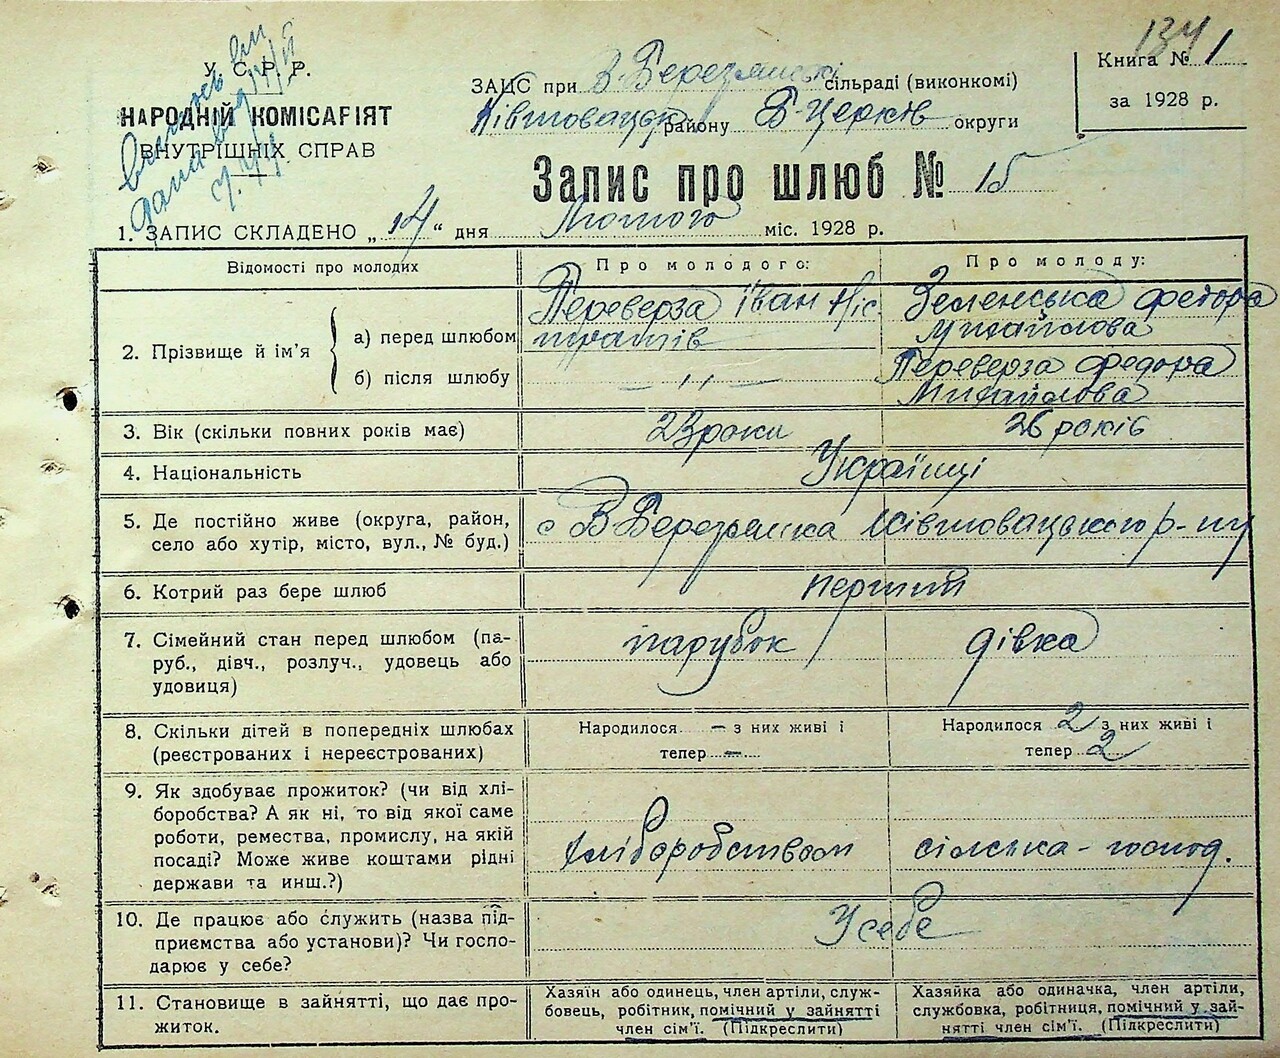 134
У С Р Р.
НАРОДНІЙ КОМІСАРІЯТ
ВНУТРІШНІХ СПРАВ
ЗАЦС при В-Березянські сільраді (виконкомі)
району Б-Церків округи
Книга № 1
за 1928 р.
Запис про шлюб № 15
1. ЗАПИС СКЛАДЕНО „ 14 “ дня Лютого міс. 1928 р.
Відомості про молодих
Про молодого:
Про молоду:
2. Прізвище й ім'я
а) перед шлюбом
Переверза Іван
Зеленська Федора
Михайлова
б) після шлюбу
— „ —
Переверза Федора
Михайлова
3. Вік (скільки повних років має)
23 роки
26 років
4. Національність
Українці
5. Де постійно живе (округа, район,
село або хутір, місто, вул., № буд.)
с В Березянка Ківшовацького р-ну
6. Котрий раз бере шлюб
перший
7. Сімейний стан перед шлюбом (па-
руб., дівч., розлуч., удовець або
удовиця)
парубок
дівка
8. Скільки дітей в попередніх шлюбах
(реєстрованих і нереєстрованих)
Народилося — з них живі і
тепер —
Народилося 2 з них живі і
тепер 2
9. Як здобуває прожиток? (чи від хлі-
боробства? А як ні, то від якої саме
роботи, ремества, промислу, на якій
посаді? Може живе коштами рідні
держави та инш.?)
хліборобством
сільська-господ.
10. Де працює або служить (назва під-
приємства або установи)? Чи госпо-
дарює у себе?
У себе
11. Становище в зайнятті, що дає про-
житок.
Хазяїн або одинець, член артіли, служ-
бовець, робітник, помічний у зайнятті
член сім'ї. (Підкреслити)
Хазяйка або одиначка, член артіли,
службовка, робітниця, помічний у зай-
нятті член сім'ї. (Підкреслити)